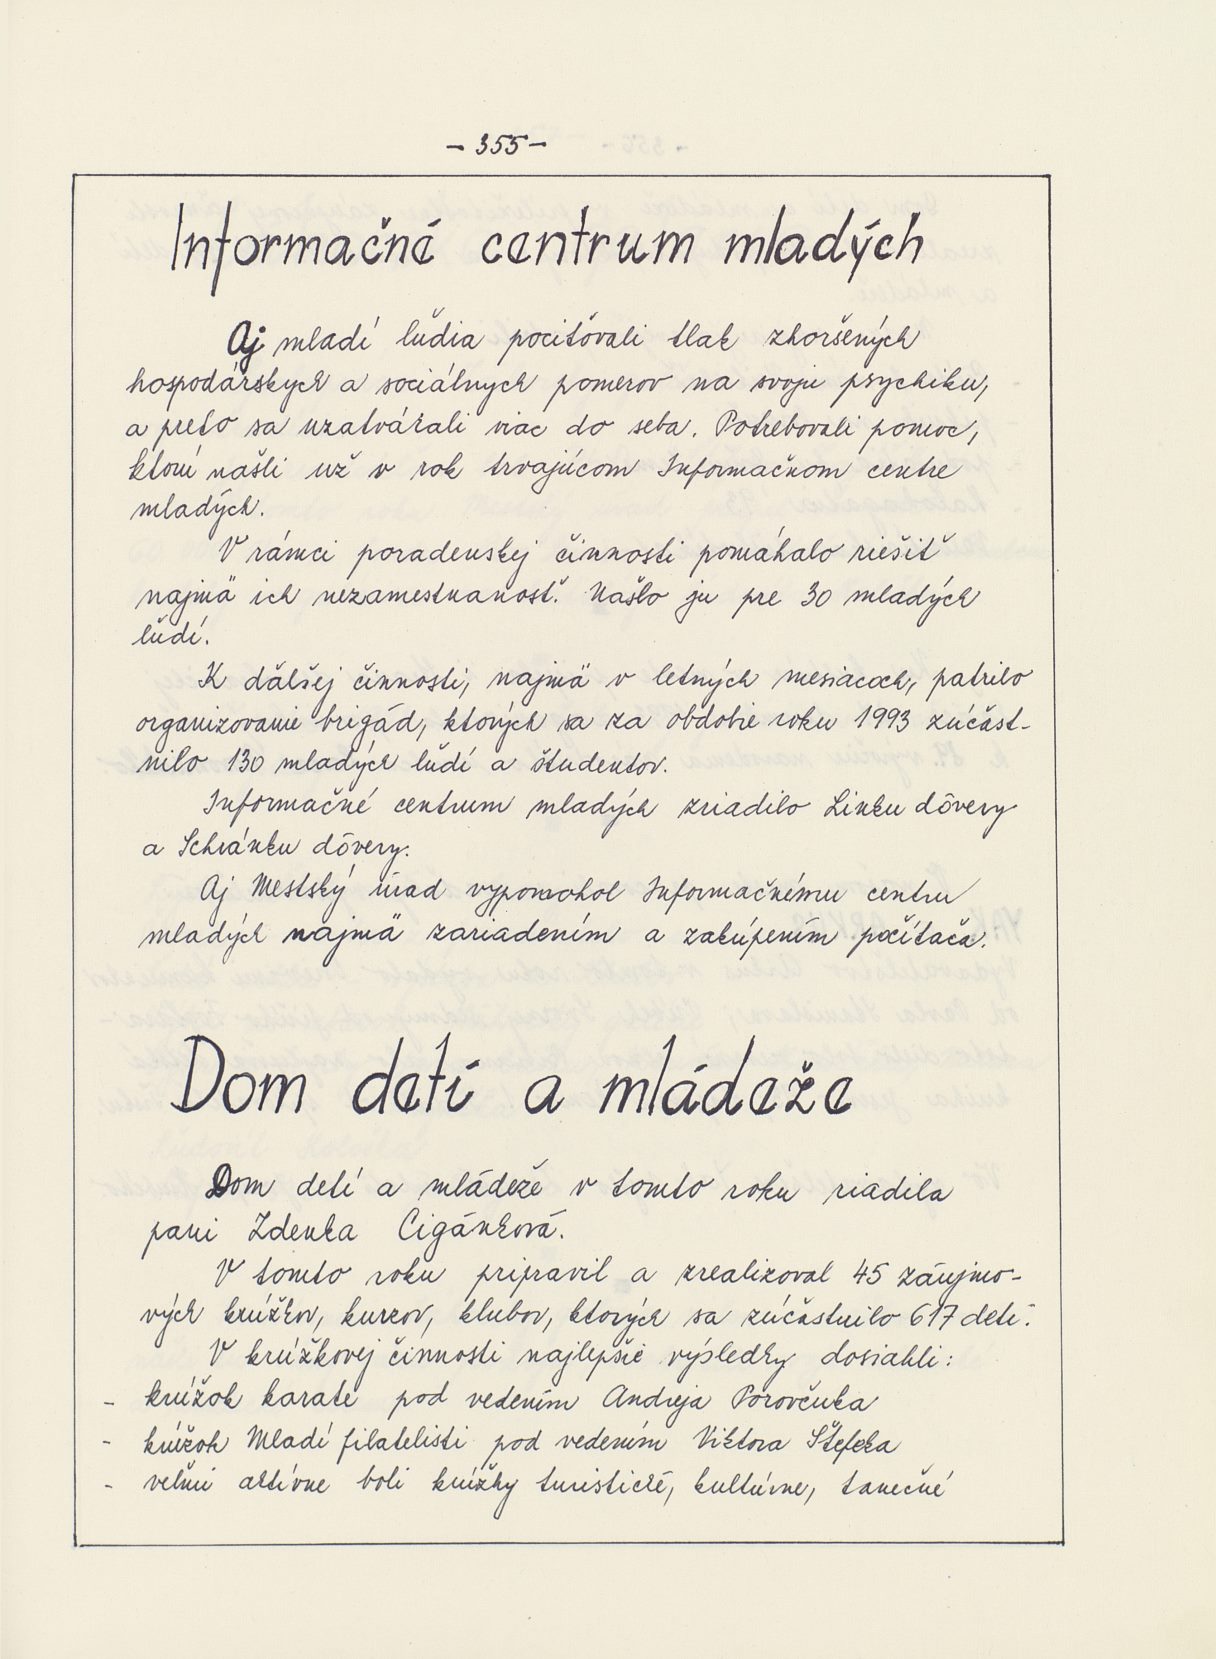 - 355 -
Informačné centrum mladých
Aj mladí ľudia pociťovali tlak zhoršených
hospodárskych a sociálnych pomerov na svoju psychiku,
a preto sa uzatvárali viac do seba. Potrebovali pomoc,
ktorú našli už v rok trvajúcom Informačnom centre
mladých.
V rámci poradenskej činnosti pomáhalo riešiť
najmä ich nezamestnanosť. Našlo ju pre 30 mladých
ľudí.
K ďalšej činnosti, najmä v letných mesiacoch, patrilo
organizovanie brigád, ktorých sa za obdobie roku 1993 zúčast-
nilo 130 mladých ľudí a študentov.
Informačné centrum mladých zriadilo Linku dôvery
a Schránku dôvery.
Aj Mestský úrad vypomohol Informačnému centru
mladých najmä zariadením a zakúpením počítača.
Dom detí a mládeže
Dom detí a mládeže v tomto roku riadila
pani Zdenka Cigánková.
V tomto roku pripravil a zrealizoval 45 záujmo-
vých krúžkov, kurzov, klubov, ktorých sa zúčastnilo 617 detí.
V krúžkovej činnosti najlepšie výsledky dosiahli:
- krúžok karate pod vedením Andreja Porovčuka
- krúžok Mladí filatelisti pod vedením Viktora Štefeka
- veľmi aktívne boli krúžky turistické, kultúrne, tanečné